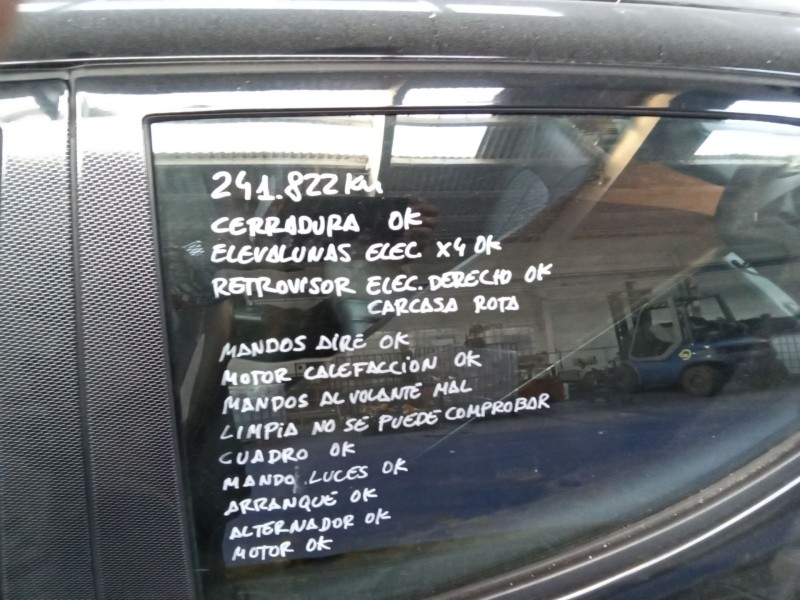 241.822 Km
CERRADURA OK
ELEVALUNAS ELEC X4 OK
RETROVISOR ELEC. DERECHO OK
CARCASA ROTA
MANDOS AIRE OK
MOTOR CALEFACCION OK
MANDOS AL VOLANTE MAL
LIMPIA NO SE PUEDE COMPROBAR
CUADRO OK
MANDO LUCES OK
ARRANQUE OK
ALTERNADOR OK
MOTOR OK